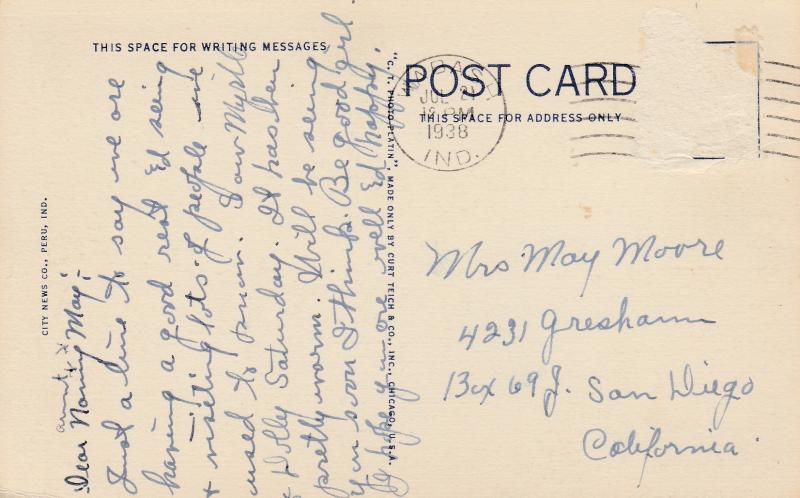 THIS SPACE FOR WRITING MESSAGES
POST CARD
THIS SPACE FOR ADDRESS ONLY
WABASH
JUL 21
12 PM
1938
IND.
CITY NEWS CO., PERU, IND.
"C. T. PHOTO-PLATIN", MADE ONLY BY CURT TEICH & CO., INC., CHICAGO, U.S.A.
aunt
Dear Nancy May:-
Just a line to say we are
having a good rest & Ed seing
& visiting lots of people we
used to know. Saw Myrtle
& Holly Saturday. It has been
pretty warm. Will be seeing
you soon I think. Be good girl
& hope you are well Ed happy.
Mrs May Moore
4231 Gresham
Box 69 J. San Diego
California